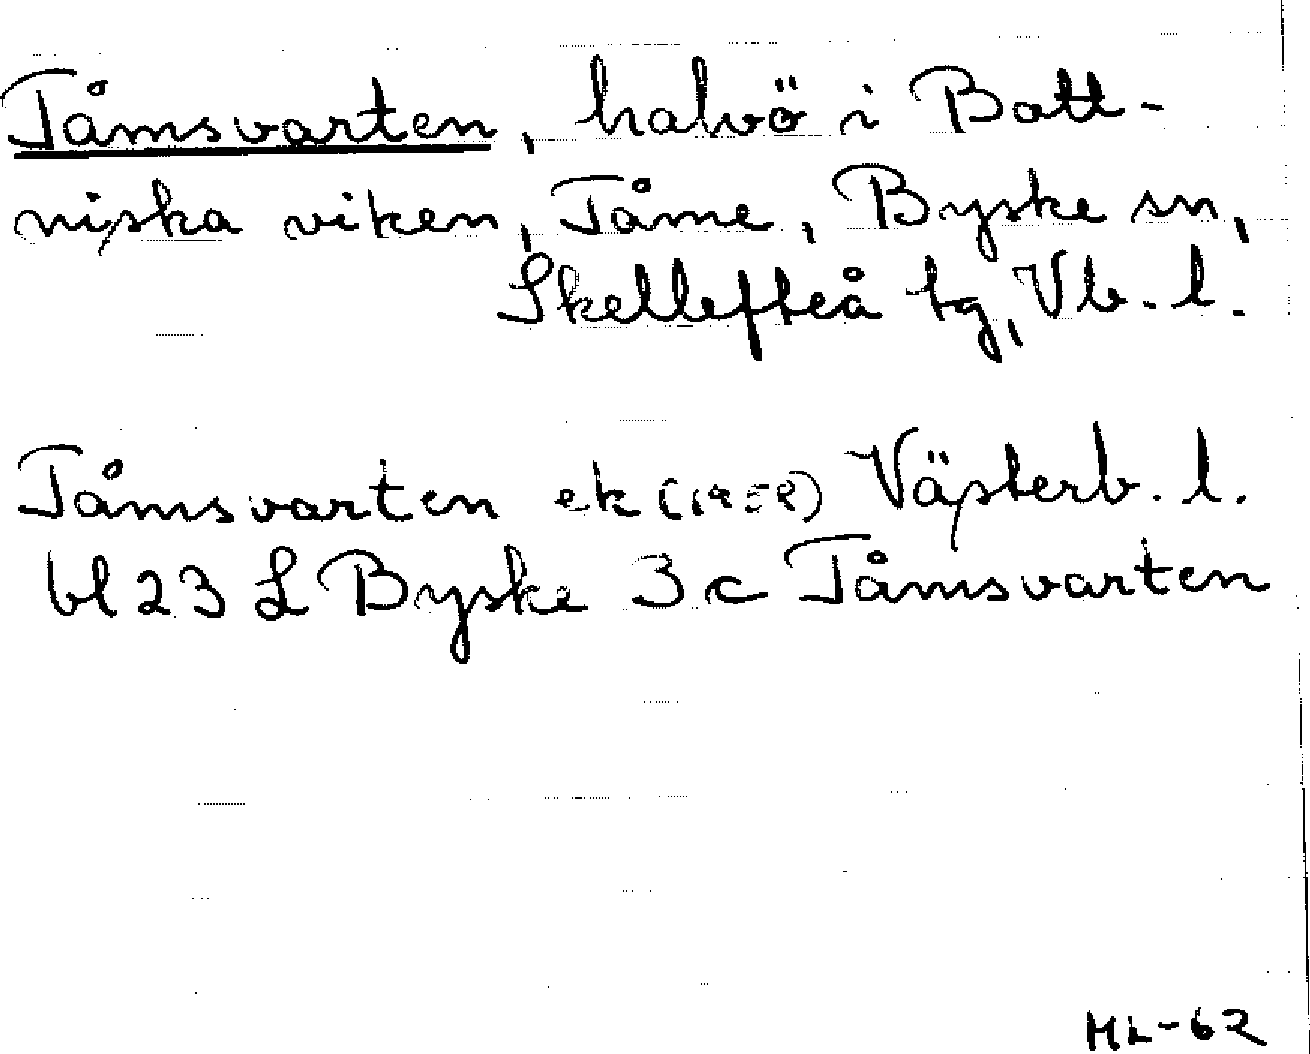 Tåmsvarten, halvö i Bott-
niska viken, Tåme, Byske sn,
Skellefteå tg, Vb. l.
Tåmsvarten ek (1958) Västerb. l.
bl 23 L Byske 3 c Tåmsvarten
ML-62